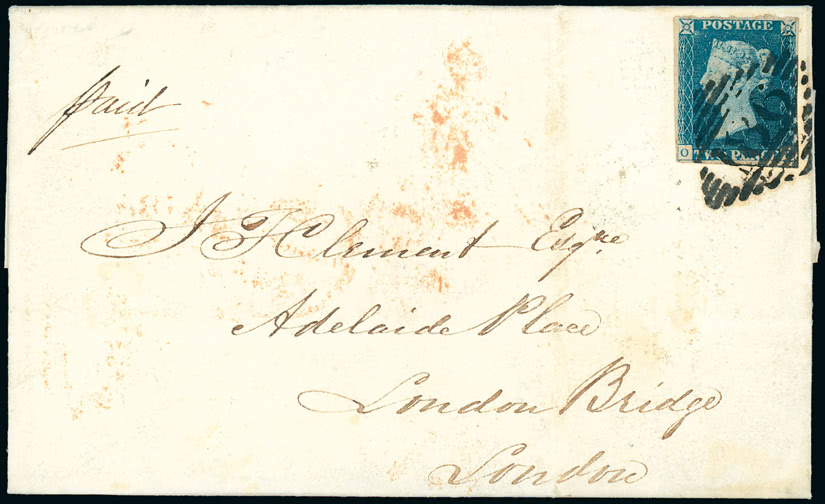 POSTAGE
paid
O
J H Clement Esqre
Adelaide Place
London Bridge
London